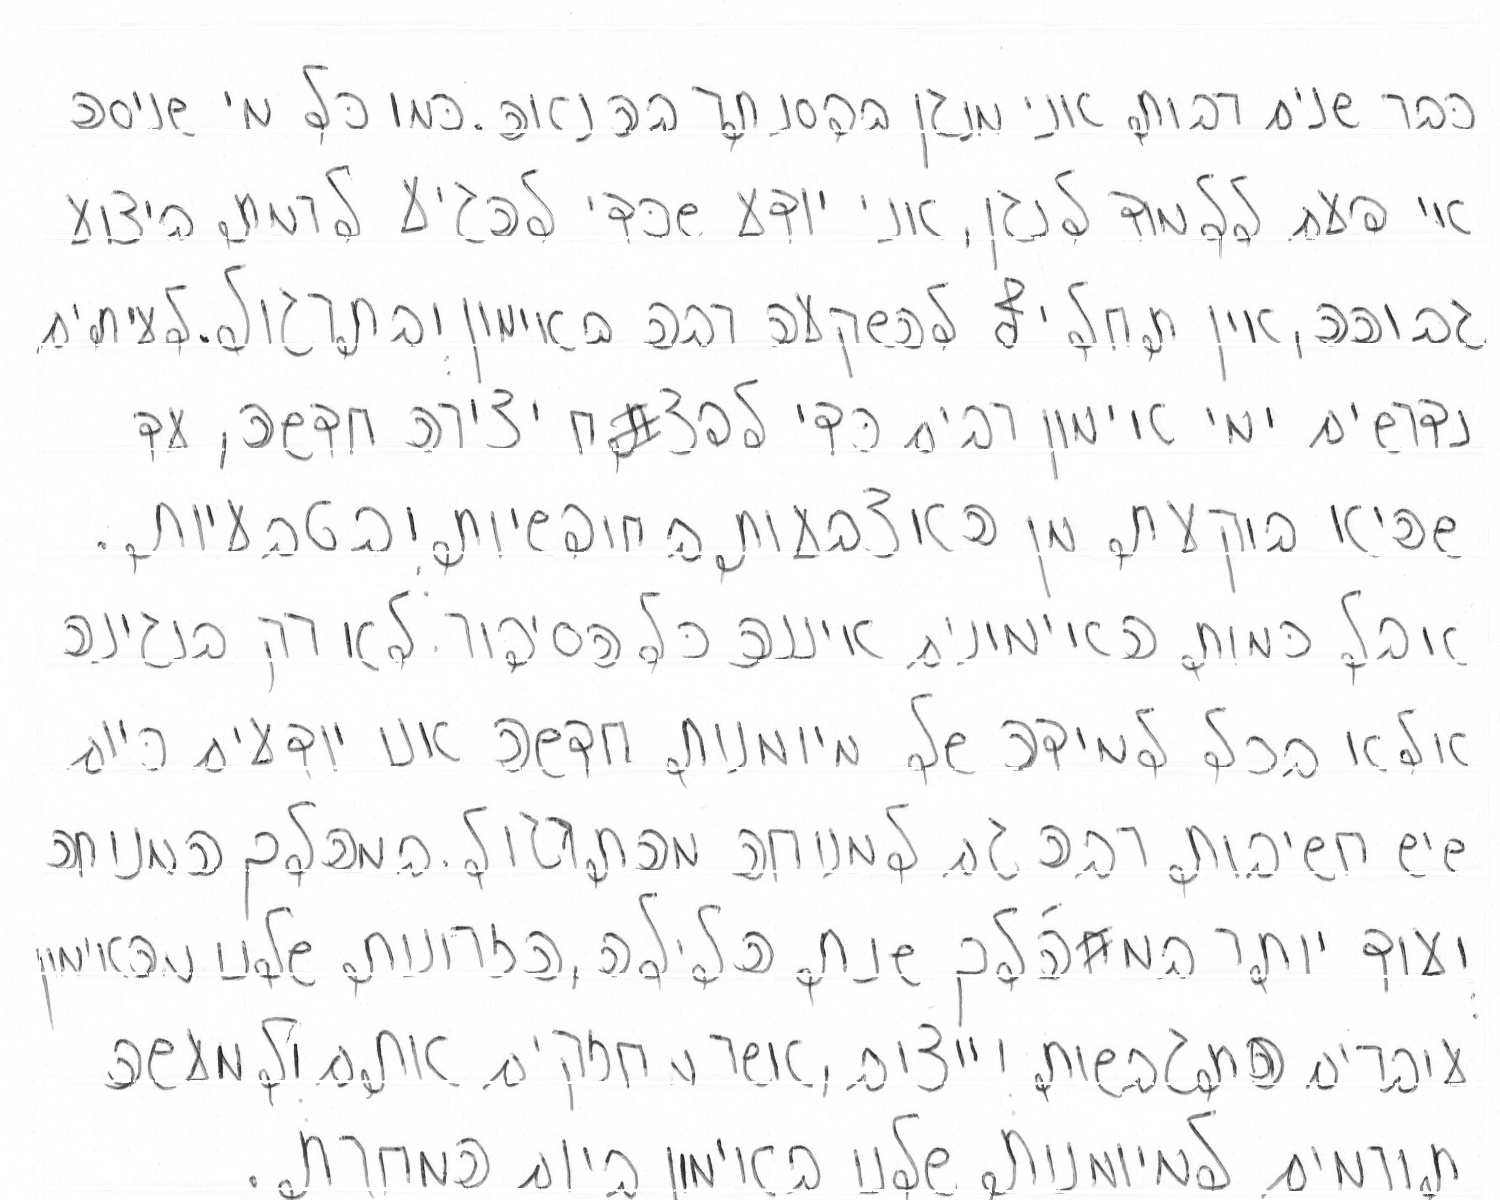 כבר שנים רבות אני מנגן בפסנתר בהנאה. כמו כל מי שניסה
אי פעם ללמוד לנגן, אני יודע שכדי להגיע לרמת ביצוע
גבוהה, אין תחליף להשקעה רבה באימון ובתרגול. לעיתים
נדרשים ימי אימון רבים כדי לפצח יצירה חדשה, עד
שהיא בוקעת מן האצבעות בחופשיות ובטבעיות.
אבל כמות האימונים איננה כל הסיפור. לא רק בנגינה
אלא בכל למידה של מיומנות חדשה אנו יודעים היום
שיש חשיבות רבה גם למנוחה מהתרגול. במהלך המנוחה
ועוד יותר במהלך שנת הלילה, הזכרונות שלנו מהאימון
עוברים התגבשות וייצוב, אשר מחזקים אותם ולמעשה
תורמים למיומנות שלנו באימון ביום המחרת.